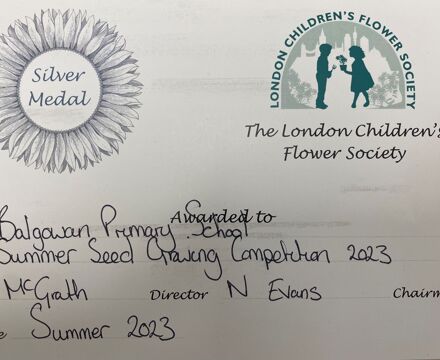 Silver
Medal
LONDON CHILDREN'S FLOWER SOCIETY
The London Children's
Flower Society
Awarded to
Balgowan Primary School
Summer Seed Growing Competition 2023
McGrath Director N Evans Chairm
e Summer 2023